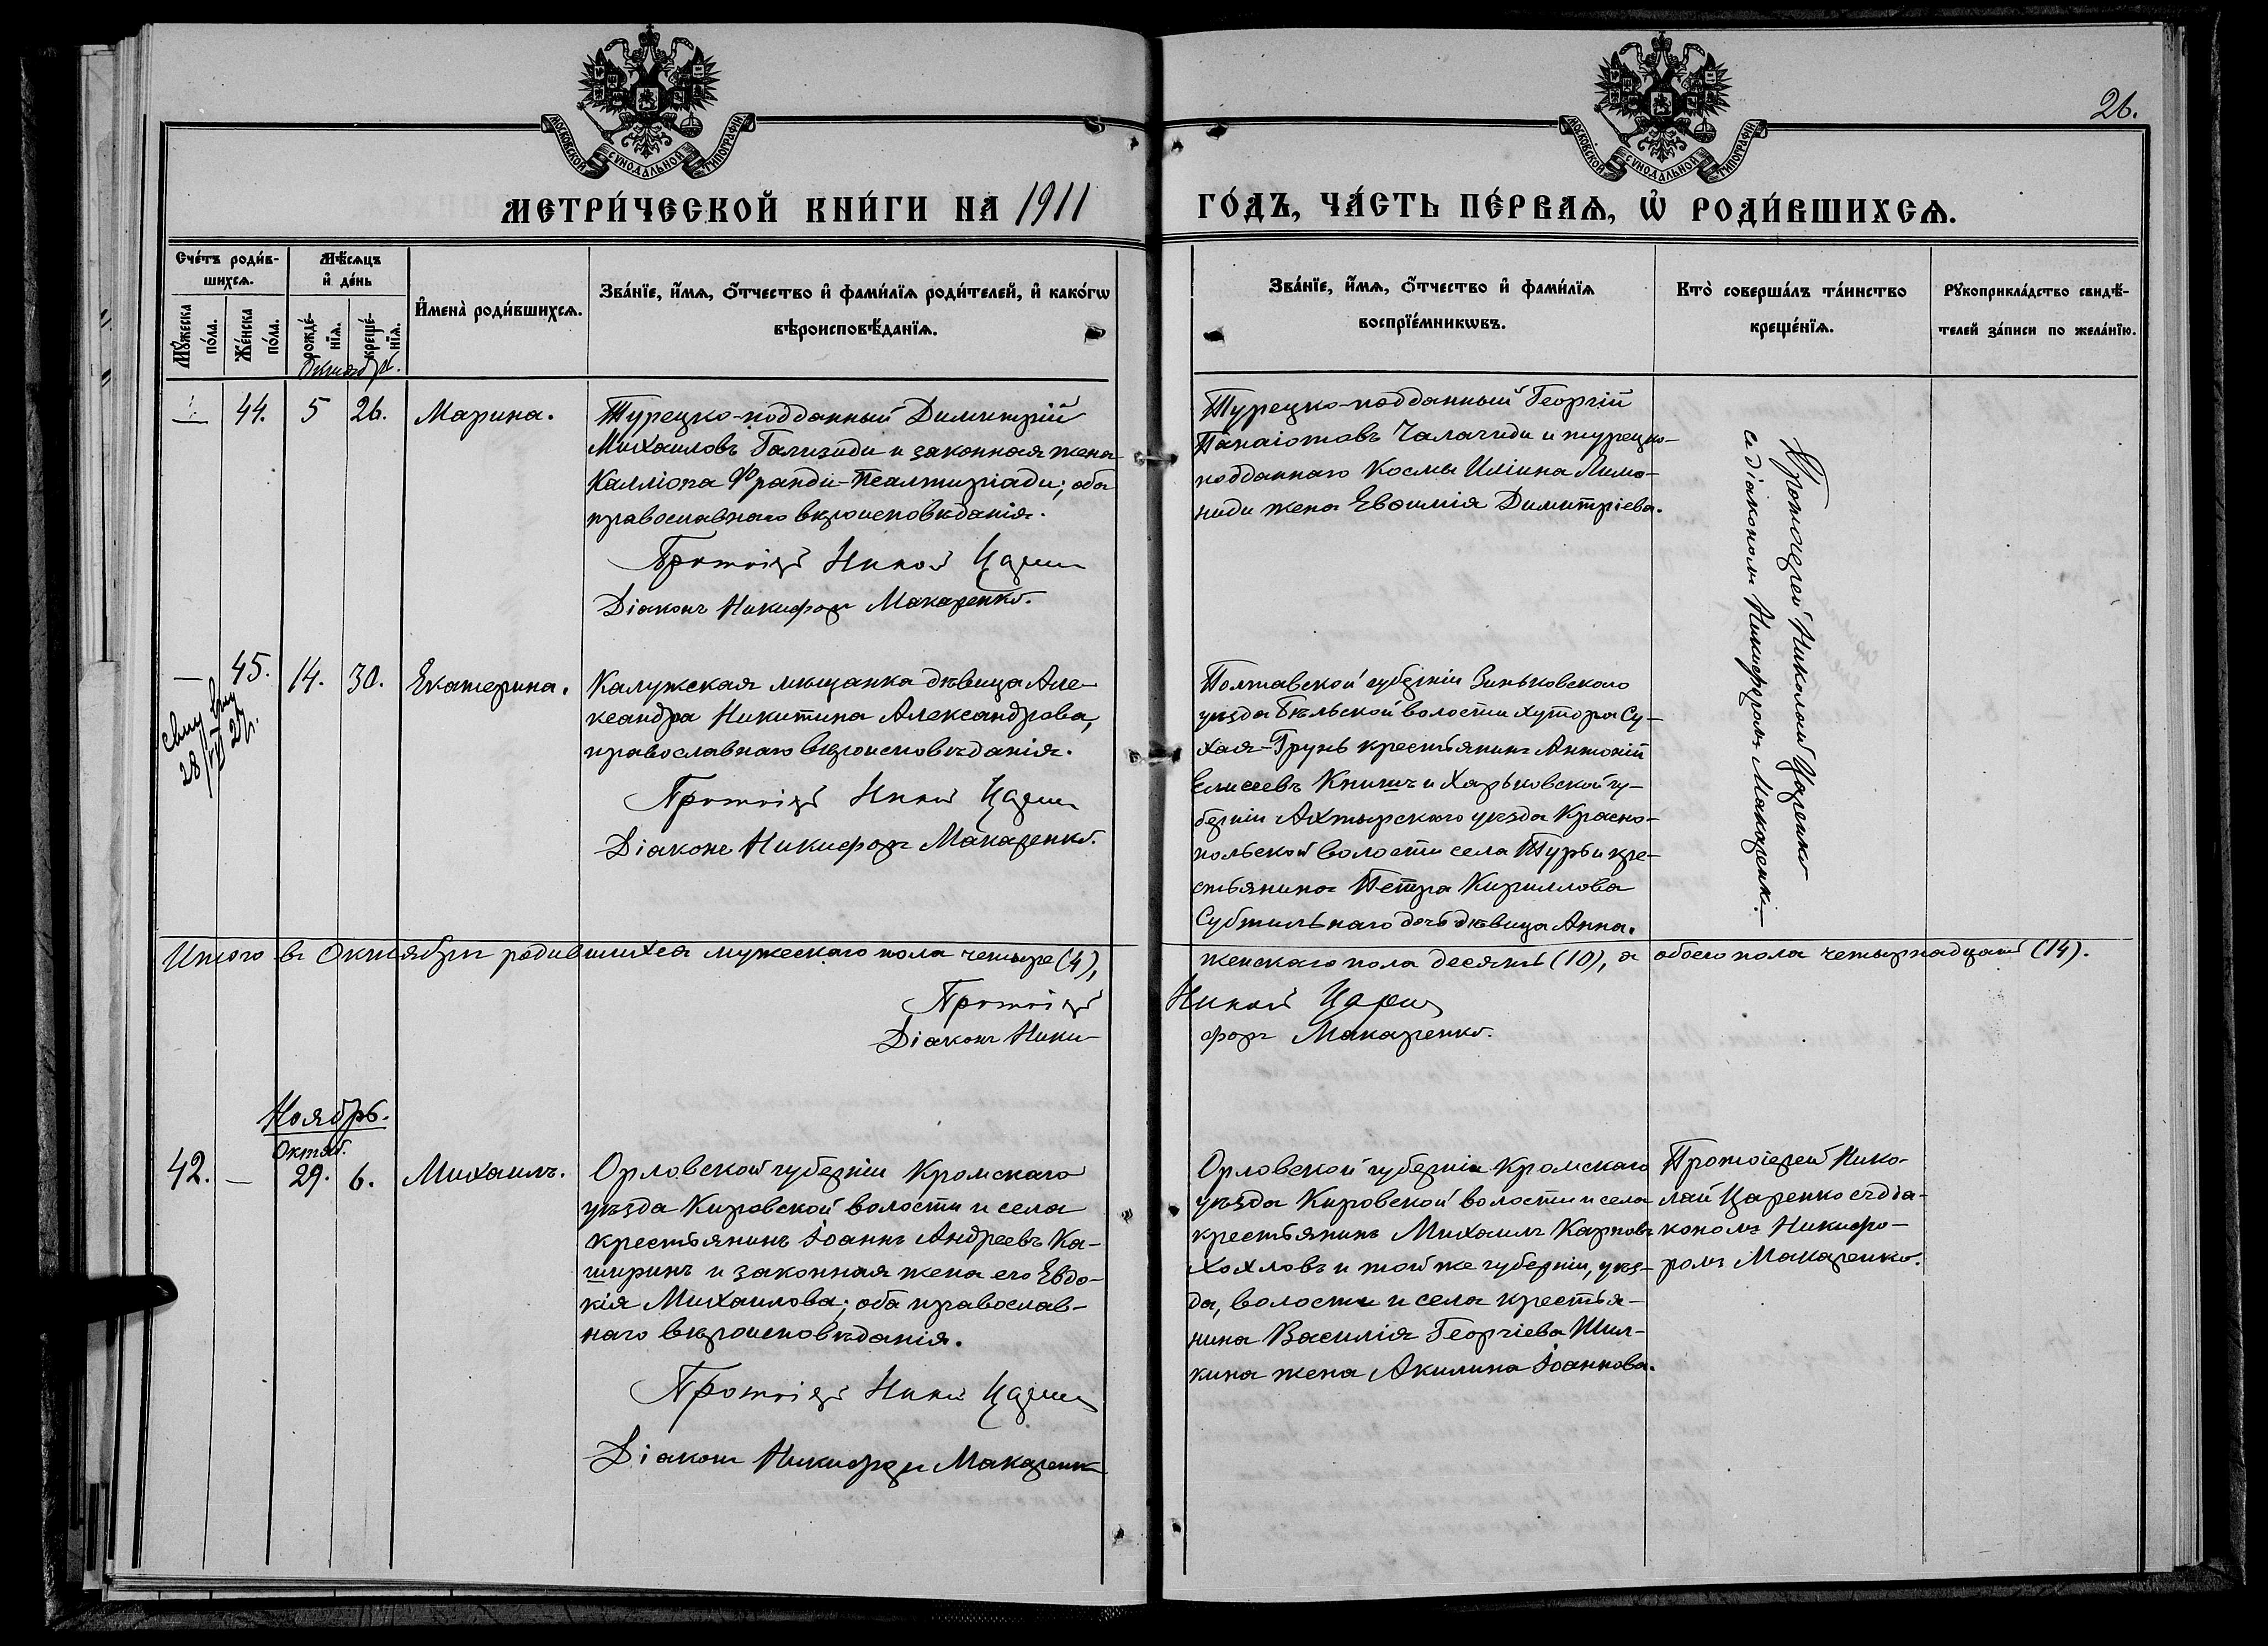 26.
МОСКОВСКОЙ СѴНОДАЛЬНОЙ ТИПОГРАФІИ
МОСКОВСКОЙ СѴНОДАЛЬНОЙ ТИПОГРАФІИ
МЕТРИ́ЧЕСКОЙ КНИ́ГИ НА 1911
ГО́ДЪ, ЧА́СТЬ ПЕ́РВАѦ, Ѡ҆ РОДИ́ВШИХСѦ.
Сче́тъ роди́в-
шихсѧ.
Мꙋ́жеска по́ла.
Же́нска по́ла.
Мѣ́сѧцъ
и҆ де́нь
рожде́-
нїѧ.
креще́-
нїѧ.
И҆мена̀ роди́вшихсѧ.
Зва́нїе, и҆́мѧ, ѻ҆́тчество и҆ фами́лїѧ роди́телей, и҆ како́гѡ
вѣроисповѣ́данїѧ.
Зва́нїе, и҆́мѧ, ѻ҆́тчество и҆ фами́лїѧ
воспрїе́мникѡвъ.
Кто̀ соверша́лъ та́инство
креще́нїѧ.
Рꙋкоприкла́дство свидѣ́-
телей за́писи по жела́нїю.
Октябрь.
— 44. 5 26. Марина.
Турецко-подданный Димитрій
Михаиловъ Гализиди и законная жена
Калліопа Франди-Псалтизіади; оба
православнаго вѣроисповѣданія.
Діаконъ Никифоръ Макаренко.
Турецко-подданный Георгій
Панаіотовъ Чалагиди и турецко-
подданнаго Космы Иліина Лимо-
ниди жена Евѳимія Димитріева.
Протоіерей Николай Царенко
съ діакономъ Никифоромъ Макаренко.
— 45. 14. 30. Екатерина.
28/VI 27г.
Калужская мѣщанка дѣвица Але-
ксандра Никитина Александрова,
православнаго вѣроисповѣданія.
Діаконъ Никифоръ Макаренко.
Полтавской губерніи Зиньковскаго
уѣзда Бѣльской волости хутора Су-
хая-Грунь крестьянинъ Антоній
Елисеевъ Книшъ и Харьковской гу-
берніи Ахтырскаго уѣзда Красно-
польской волости села Турьи кре-
стьянина Петра Кириллова
Субтильнаго дочь дѣвица Анна.
Итого въ Октябрѣ родившихся мужескаго пола четыре (4),
женскаго пола десять (10), а обоего пола четырнадцать (14).
Діаконъ Ники-
форъ Макаренко.
Ноябрь.
Октяб.
42. — 29. 6. Михаилъ.
Орловской губерніи Кромскаго
уѣзда Кировской волости и села
крестьянинъ Іоаннъ Андреевъ Ка-
ширинъ и законная жена его Евдо-
кія Михаилова; оба православ-
наго вѣроисповѣданія.
Діаконъ Никифоръ Макаренко
Орловской губерніи Кромскаго
уѣзда Кировской волости и села
крестьянинъ Михаилъ Карповъ
Хохловъ и той же губерніи, уѣз-
да, волости и села крестья-
нина Василія Георгіева Шил-
кина жена Акилина Іоаннова.
Протоіерей Нико-
лай Царенко съ діа-
кономъ Никифо-
ромъ Макаренко.